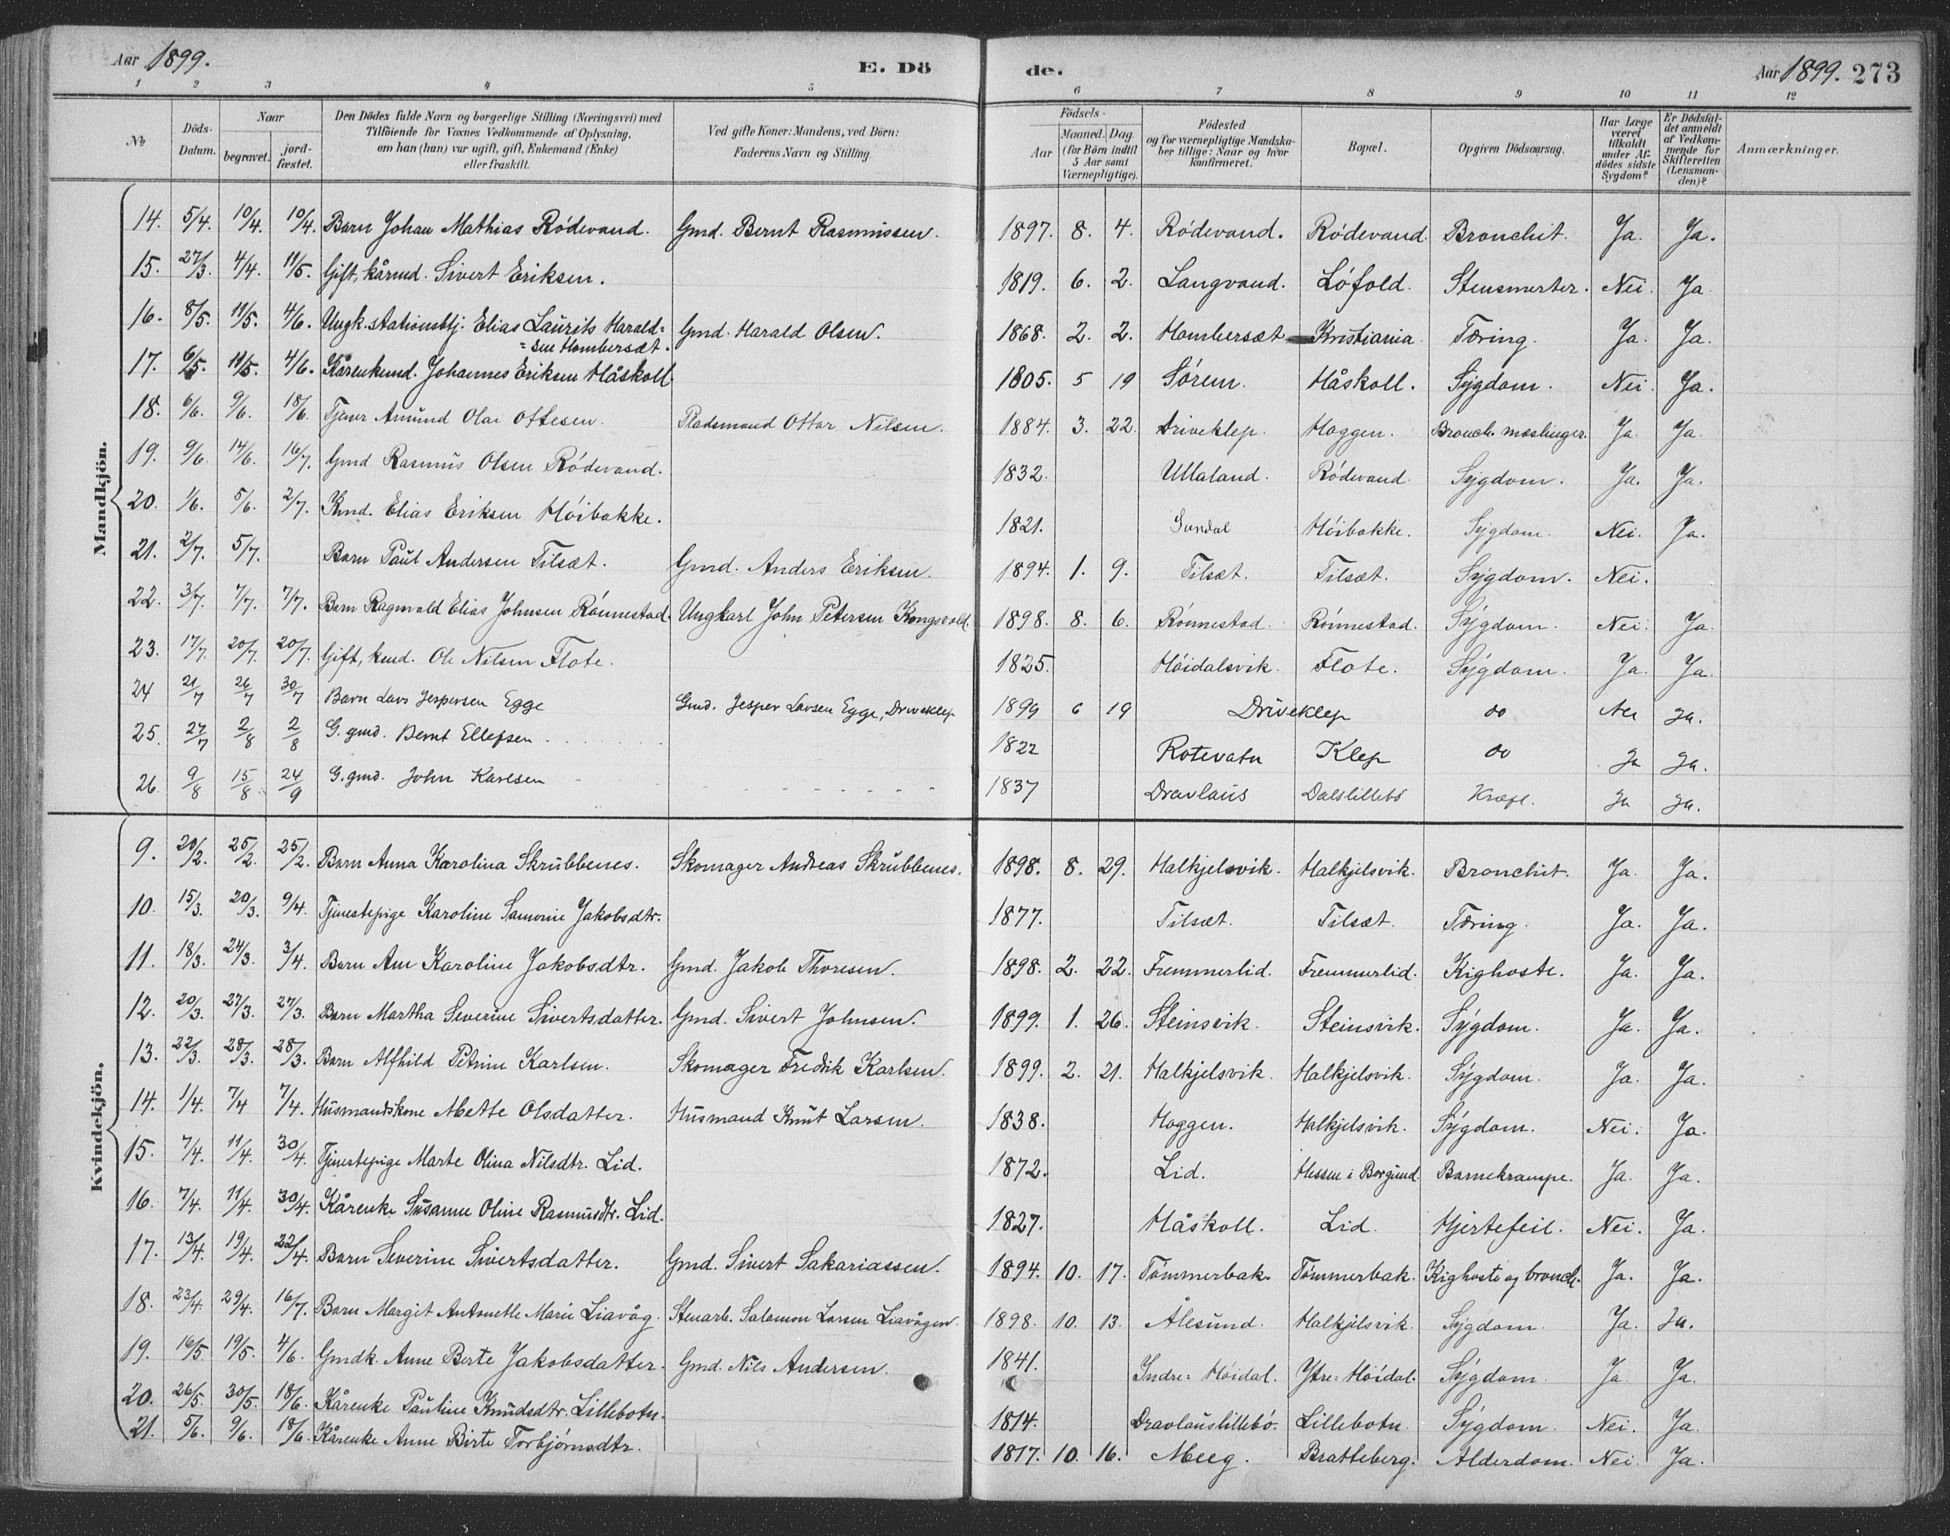 Aar 1899. E. Dö de. Aar 1899. 273
1 2 3 4 5 6 7 8 9 10 11 12
No Döds-Datum. Naar begravet. jord-fæstet. Den Dödes fulde Navn og borgerlige Stilling (Næringsvei) med Tilföiende for Voxnes Vedkommende af Oplysning, om han (hun) var ugift, gift, Enkemand (Enke) eller fraskilt. Ved gifte Koner: Mandens, ved Börn: Faderens Navn og Stilling. Födsels- Aar Maaned. Dag. (for Börn indtil 5 Aar samt Værnepligtige). Födested og for værnepligtige Mandskaber tillige: Naar og hvor konfirmeret. Bopæl. Opgiven Dödsaarsag. Har Læge været tilkaldt under Afdödes sidste Sygdom? Er Dödsfaldet anmeldt af Vedkommende for Skifteretten (Lensmanden)? Anmærkninger.
Mandkjön.
14. 5/4. 10/4. 10/4. Barn Johan Mathias Rödevand. Gmd. Bernt Rasmussen. 1897. 8. 4. Rödevand. Rödevand. Bronchit. Ja. Ja.
15. 27/3. 4/4. 11/5. Gift, kårmd. Sivert Eriksen. 1819. 6. 2. Langvand. Löfold. Stensmerter. Nei. Ja.
16. 8/5. 11/5. 4/6. Ungk. stationsbtj. Elias Laurits Harald=
=sen Hambersæt. Gmd. Harald Olsen. 1868. 2. 2. Hambersæt Kristiania. Tæring. Ja. Ja.
17. 6/5. 11/5. 4/6. Kårenkemd. Johannes Eriksen Håskoll. 1805. 5 19 Sörem. Håskoll. Sygdom. Nei. Ja.
18. 6/6. 9/6. 18/6. Tjener Amund Olai Ottesen. Pladsmand Ottar Nilsen. 1884. 3. 22. Driveklep. Haggen. Bronch. mæslinger. Ja. Ja.
19. 9/6. 14/6. 16/7. Gmd Rasmus Olsen Rödevand. 1832. Ullaland. Rödevand. Sygdom. Ja. Ja.
20. 1/6. 5/6. 2/7. Kmd. Elias Eriksen Höibakke. 1821. Sundal Höibakke. Sygdom. Nei. Ja.
21. 2/7. 5/7. Barn Paul Andersen Tilsæt. Gmd. Anders Eriksen. 1894. 1. 9. Tilsæt. Tilsæt. Sygdom. Nei.
22. 3/7. 7/7. 7/7. Barn Ragnvald Elias Johnsen Rönnestad. Ungkarl John Petersen Kongsvold. 1898. 8. 6. Rönnestad. Rönnestad. Sygdom. Nei. Ja.
23. 17/7. 20/7. 20/7. Gift, kmd. Ole Nilsen Flote. 1825. Höidalsvik. Flote. Sygdom. Ja. Ja.
24 21/7 26/7 30/7 Barn Lars Jespersen Egge Gmd. Jesper Larsen Egge, Driveklep 1899 6 19 Driveklep do Nei Ja.
25. 27/7 2/8 2/8 G. gmd. Bernt Ellefsen 1822 Rotevatn Klep do Ja Ja.
26 9/8 15/8 24/9 G. gmd. John Karlsen 1837 Dravlaus Dalslillebö Kræft. Ja Ja.
Kvindekjön.
9. 20/2. 25/2. 25/2. Barn Anna Karolina Skrubbenes. Skomager Andreas Skrubbenes. 1898. 8. 29. Halkjelsvik. Halkjelsvik. Bronchit. Ja. Ja.
10. 15/3. 20/3. 9/4. Tjenestepige Karoline Samonie Jakobsdtr. 1877. Tilsæt. Tilsæt. Tæring. Ja. Ja.
11. 18/3. 24/3. 3/4. Barn Ane Karoline Jakobsdtr. Gmd. Jakob Thoresen. 1898. 2. 22. Fremmerlid. Fremmerlid. Kighoste. Ja. Ja.
12. 20/3. 27/3. 27/3. Barn Martha Severine Sivertsdatter. Gmd. Sivert Johnsen. 1899. 1. 26. Steinsvik. Steinsvik. Sygdom. Ja. Ja.
13. 22/3. 28/3. 28/3. Barn Alfhild Petrine Karlsen. Skomager Fredrik Karlsen. 1899. 2. 21. Halkjelsvik. Halkjelsvik. Sygdom. Ja. Ja.
14. 1/4. 7/4 7/4. Husmandskone Mette Olsdatter. Husmand Knut Larsen. 1838. Haggen. Halkjelsvik. Sygdom. Nei. Ja.
15. 7/4. 11/4. 30/4. Tjenestepige Marte Olina Nilsdtr. Lid. 1872. Lid. Hessen i Borgund. Barnekrampe. Ja. Ja.
16. 7/4. 11/4. 30/4. Kårenke Susanne Oline Rasmusdtr. Lid. 1827. Håskoll. Lid. Hjertefeil. Nei. Ja.
17. 13/4. 19/4. 22/4. Barn Severine Sivertsdatter. Gmd. Sivert Sakariassen. 1894. 10. 17. Tömmerbak. Tömmerbak. Kighoste og bronch. Ja. Ja.
18. 23/4. 29/4. 16/7. Barn Margit Antonette Marie Liavåg. Stenarb. Salamon Larsen Liavågen. 1898. 10. 13. Ålesund. Halkjelsvik. Sygdom. Ja. Ja.
19. 16/5. 19/5. 4/6. Gmdk. Anne Berte Jakobsdatter. Gmd. Nils Andersen. 1841. Indre=Höidal. Ytre=Höidal. Sygdom. Ja. Ja.
20. 26/5. 30/5. 18/6. Kårenke Pauline Knudsdtr. Lillebotn. 1814. Dravlauslillebö. Lillebotn. Sygdom. Nei. Ja.
21. 5/6. 9/6. 18/6. Kårenke Anne Birte Torbjörnsdtr. 1817. 10. 16. Meeg. Bratteberg. Alderdom. Nei. Ja.